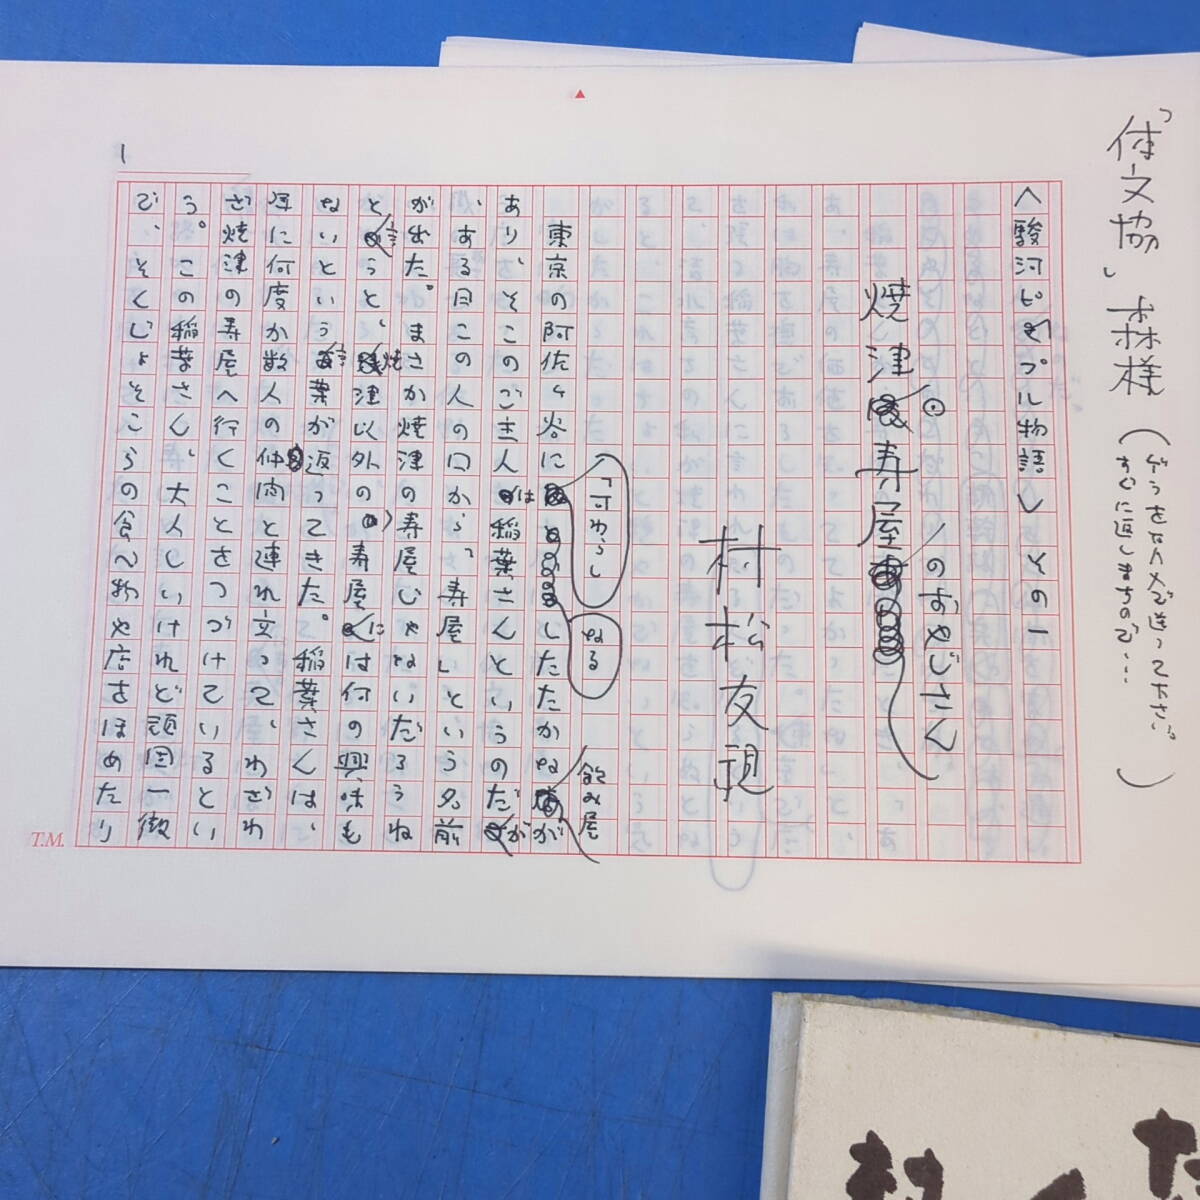 「体文協」森様(ゲラをFAXで送って下さい。
すぐに返しますので…)
〈駿河ピープル物語〉その一
焼津寿屋のおやじさん
村松友視
東京の阿佐ヶ谷に「可わらし」なるしたたかな飲み屋が
あり、そこのご主人は稲葉さんというのだが
、ある日この人の口から、寿屋」という名前
が出た。まさか焼津の寿屋じゃないだろうね
と言うと、焼津以外の寿屋には何の興味も
ないという言葉が返ってきた。稲葉さんは、
年に何度か数人の仲間と連れ立って、わざわ
ざ焼津の寿屋へ行くことをつづけているとい
う。この稲葉さん、大人しいけれど頑固一徹
で、そんじょそこらの食べ物や店をほめたり
1
T.M.